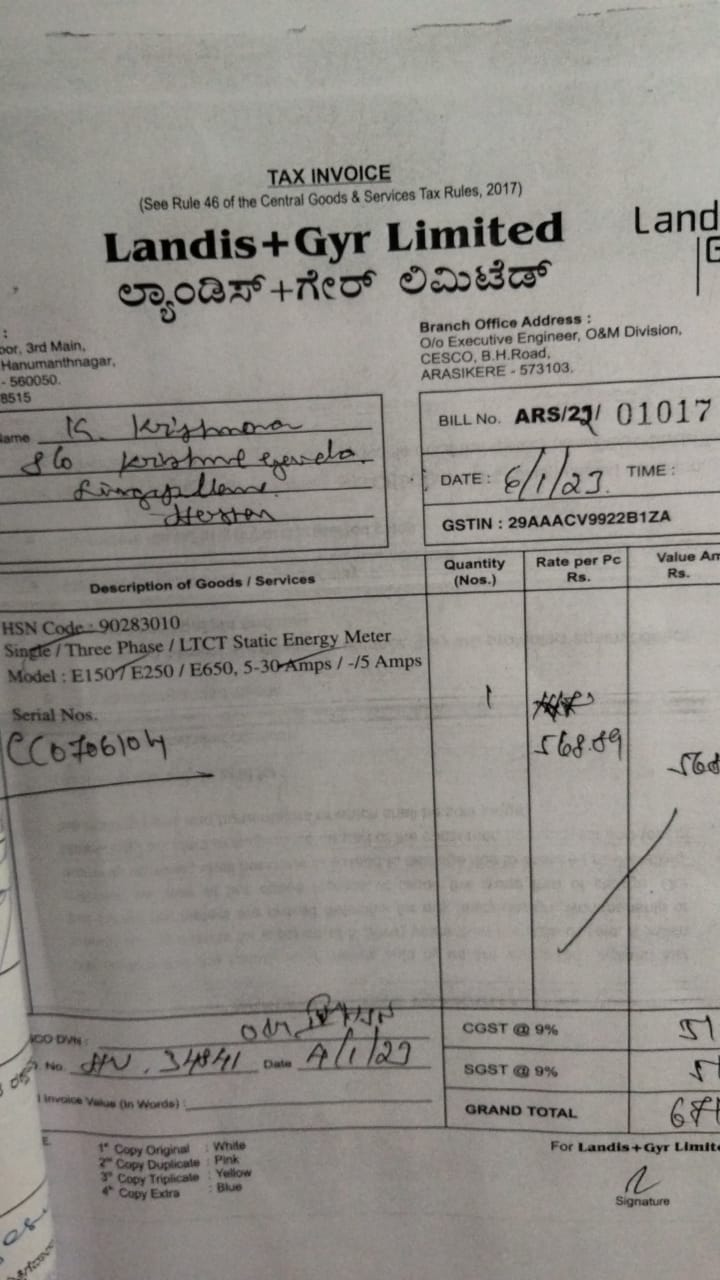 TAX INVOICE
(See Rule 46 of the Central Goods & Services Tax Rules, 2017)
Landis+Gyr Limited
ಲ್ಯಾಂಡಿಸ್+ಗೇರ್ ಲಿಮಿಟೆಡ್
Land
G
:
oor, 3rd Main,
Hanumanthnagar,
- 560050.
8515
Branch Office Address :
O/o Executive Engineer, O&M Division,
CESCO, B.H.Road,
ARASIKERE - 573103.
ame K. Krishnana
S/o
BILL No. ARS/22/ 01017
DATE : 6/1/23. TIME :
GSTIN : 29AAACV9922B1ZA
Description of Goods / Services
Quantity
(Nos.)
Rate per Pc
Rs.
Value Am
Rs.
HSN Code : 90283010
Single / Three Phase / LTCT Static Energy Meter
Model : E150 / E250 / E650, 5-30 Amps / -/5 Amps
Serial Nos.
CC0706104
1
568.89
568
CO DVN :
No. 34841 Date 4/1/23
Invoice Value (In Words) :
CGST @ 9% 51
SGST @ 9% 5
GRAND TOTAL 67
1st Copy Original : White
2nd Copy Duplicate : Pink
3rd Copy Triplicate : Yellow
4th Copy Extra : Blue
For Landis+Gyr Limite
Signature